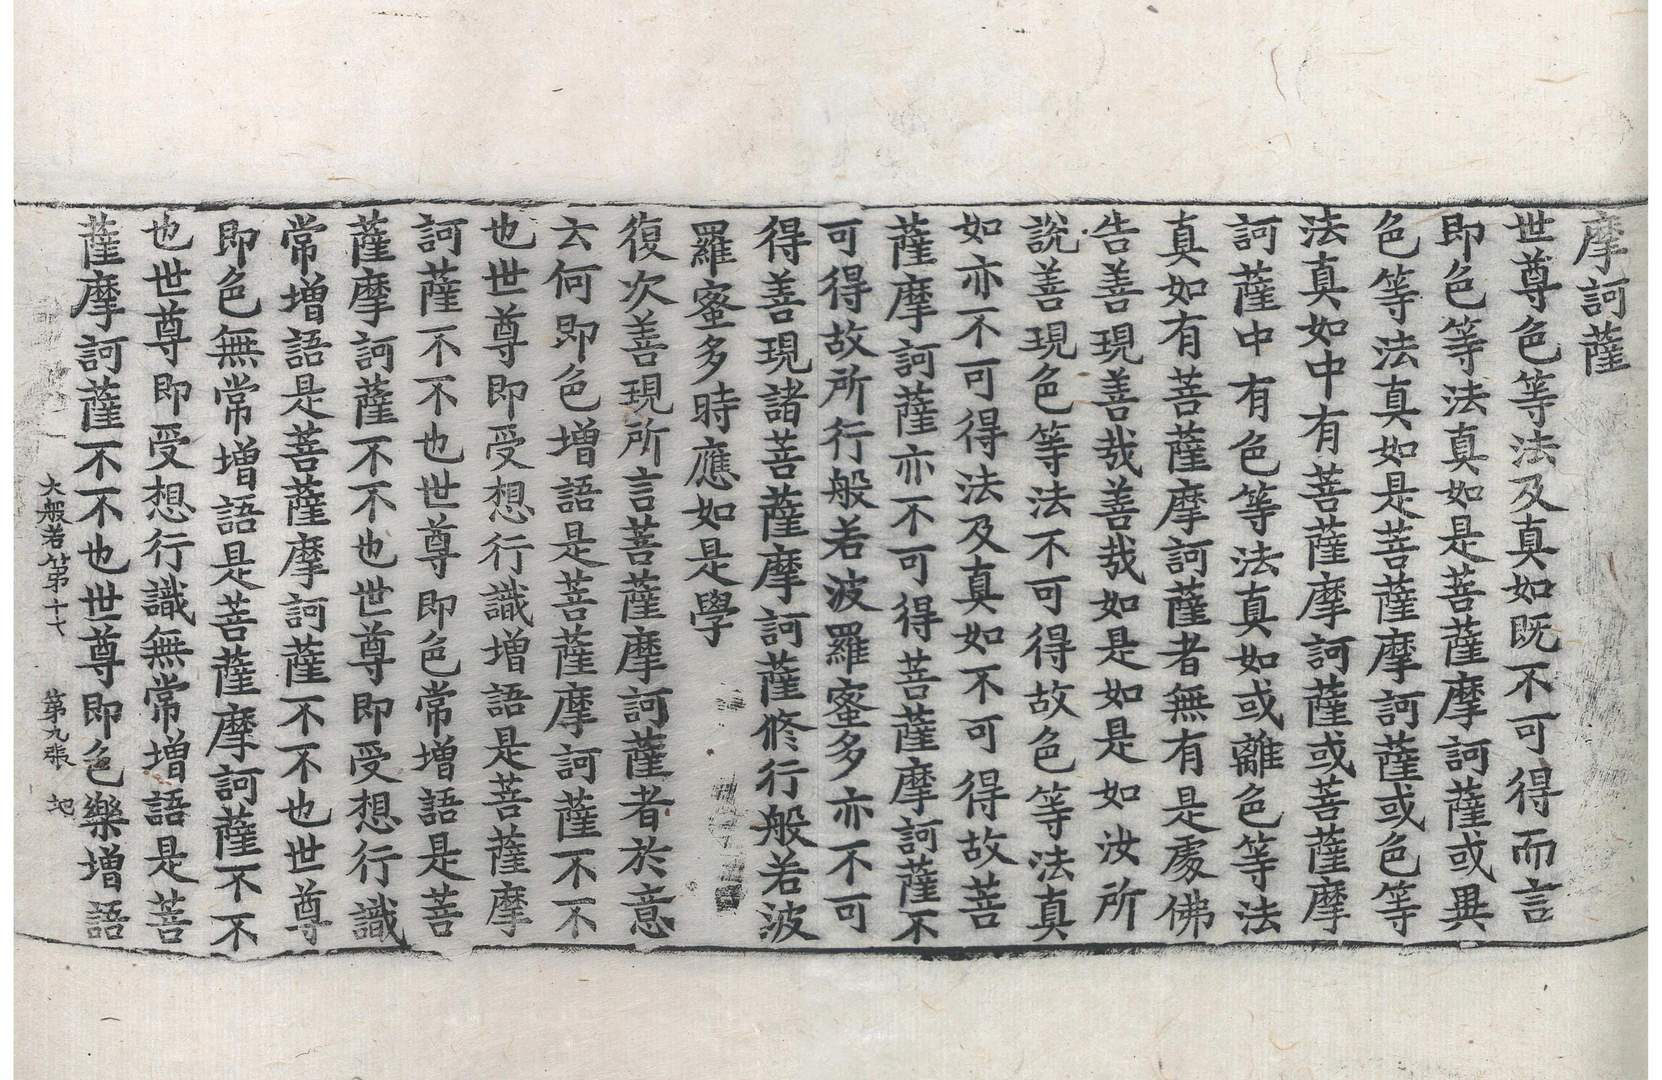 摩訶薩
世尊色等法及真如既不可得而言
即色等法真如是菩薩摩訶薩或異
色等法真如是菩薩摩訶薩或色等
法真如中有菩薩摩訶薩或菩薩摩
訶薩中有色等法真如或離色等法
真如有菩薩摩訶薩者無有是處佛
告善現善哉善哉如是如是如汝所
說善現色等法不可得故色等法真
如亦不可得法及真如不可得故菩
薩摩訶薩亦不可得菩薩摩訶薩不
可得故所行般若波羅蜜多亦不可
得善現諸菩薩摩訶薩修行般若波
羅蜜多時應如是學
復次善現所言菩薩摩訶薩者於意
云何即色增語是菩薩摩訶薩不不
也世尊即受想行識增語是菩薩摩
訶薩不不也世尊即色常增語是菩
薩摩訶薩不不也世尊即受想行識
常增語是菩薩摩訶薩不不也世尊
即色無常增語是菩薩摩訶薩不不
也世尊即受想行識無常增語是菩
薩摩訶薩不不也世尊即色樂增語
大般若第十七 第九張 地